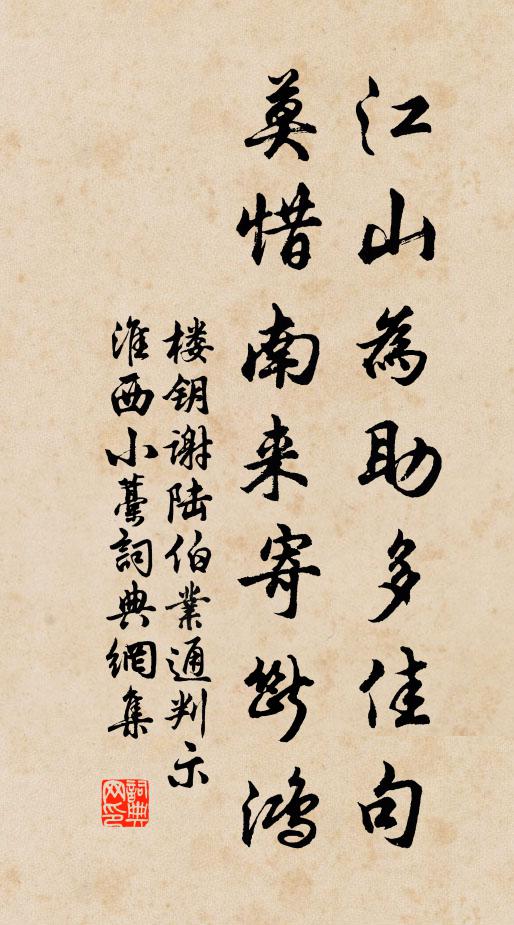 江山為助多佳句
莫惜南来寄断鸿
楼钥谢陆伯業通判示
淮西小藁詞典網集
詞典网印